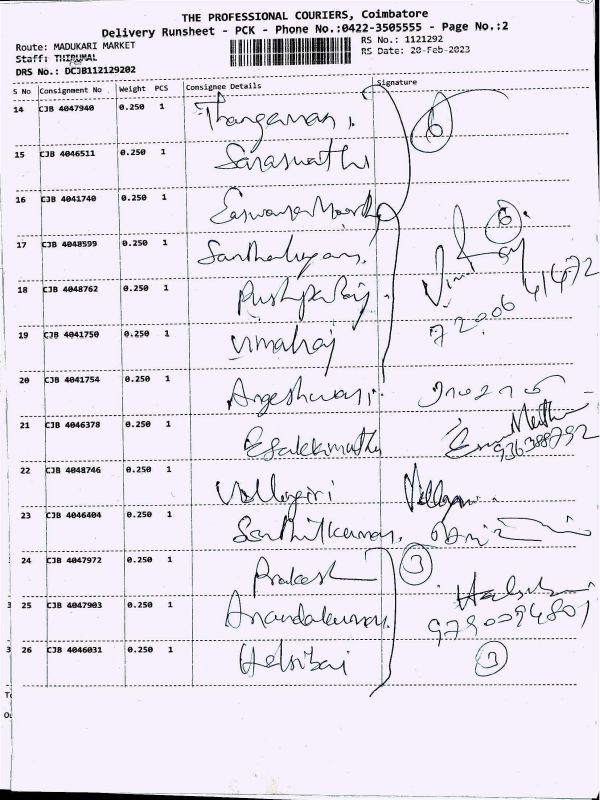 THE PROFESSIONAL COURIERS, Coimbatore
Delivery Runsheet - PCK - Phone No.:0422-3505555 - Page No.:2
Route: MADUKARI MARKET
RS No.: 1121292
Staff: THIRUMAL
RS Date: 20-Feb-2023
DRS No.: DCJB112129202
S No Consignment No Weight PCS Consignee Details Signature
14 CJB 4047940 0.250 1 Thangamani. 6
15 CJB 4046511 0.250 1 Saraswathi
16 CJB 4041740 0.250 1 Easwaramoorthy 6.
17 CJB 4048599 0.250 1
18 CJB 4048762 0.250 1 Pushparaj. 72006 41472
19 CJB 4041750 0.250 1 Vimalraj
20 CJB 4041754 0.250 1 Angeshwari.
21 CJB 4046378 0.250 1 Esakkimuthu
22 CJB 4048746 0.250 1 Vellingiri
23 CJB 4046404 0.250 1 Senthilkumar.
24 CJB 4047972 0.250 1 Prakash 3
25 CJB 4047903 0.250 1 Anandakumar. 9790094801
26 CJB 4046031 0.250 1 3